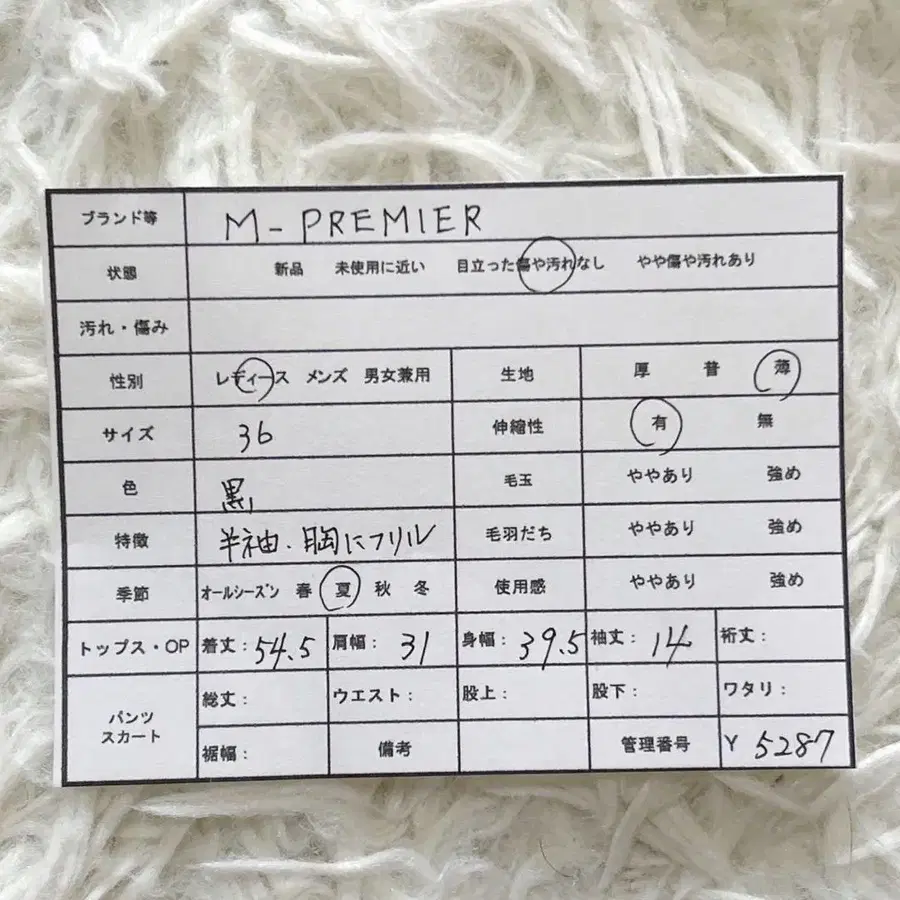 ブランド等 M-PREMIER
状態 新品 未使用に近い 目立った傷や汚れなし やや傷や汚れあり
汚れ・傷み
性別 レディース メンズ 男女兼用 生地 厚 普 薄
サイズ 36 伸縮性 有 無
色 黒 毛玉 ややあり 強め
特徴 半袖、胸にフリル 毛羽だち ややあり 強め
季節 オールシーズン 春 夏 秋 冬 使用感 ややあり 強め
トップス・OP 着丈:54.5 肩幅:31 身幅:39.5 袖丈:14 裄丈:
パンツ 総丈: ウエスト: 股上: 股下: ワタリ:
スカート 裾幅: 備考 管理番号 Y 5287